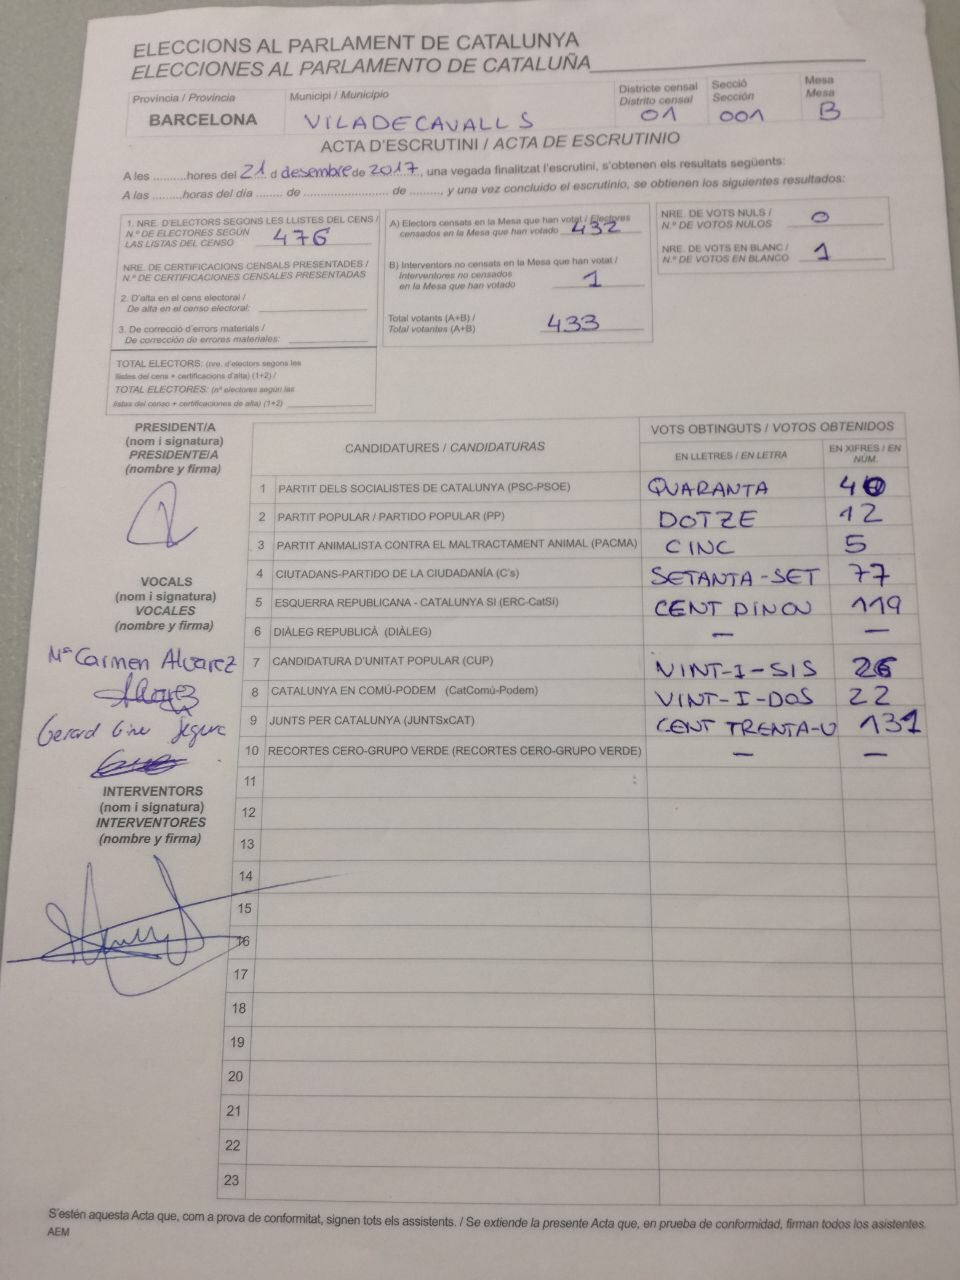 ELECCIONS AL PARLAMENT DE CATALUNYA
ELECCIONES AL PARLAMENTO DE CATALUÑA
Provincia / Provincia
BARCELONA
Municipi / Municipio
VILADECAVALLS
Districte censal
Distrito censal
01
Secció
Sección
001
Mesa
Mesa
B
ACTA D'ESCRUTINI / ACTA DE ESCRUTINIO
A les .........hores del 21 d desembre de 2017, una vegada finalitzat l'escrutini, s'obtenen els resultats següents:
A las .........horas del día ........ de ........................ de ........., y una vez concluido el escrutinio, se obtienen los siguientes resultados:
1. NRE. D'ELECTORS SEGONS LES LLISTES DEL CENS /
N.º DE ELECTORES SEGÚN
LAS LISTAS DEL CENSO 476
NRE. DE CERTIFICACIONS CENSALS PRESENTADES /
N.º DE CERTIFICACIONES CENSALES PRESENTADAS
2. D'alta en el cens electoral /
De alta en el censo electoral:
3. De correcció d'errors materials /
De corrección de errores materiales:
TOTAL ELECTORS: (nre. d'electors segons les
llistes del cens + certificacions d'alta) (1+2) /
TOTAL ELECTORES: (nº electores según las
listas del censo + certificaciones de alta) (1+2)
A) Electors censats en la Mesa que han votat / Electores
censados en la Mesa que han votado 432
B) Interventors no censats en la Mesa que han votat /
Interventores no censados
en la Mesa que han votado 1
Total votants (A+B) /
Total votantes (A+B) 433
NRE. DE VOTS NULS /
N.º DE VOTOS NULOS 0
NRE. DE VOTS EN BLANC /
N.º DE VOTOS EN BLANCO 1
PRESIDENT/A
(nom i signatura)
PRESIDENTE/A
(nombre y firma)
VOCALS
(nom i signatura)
VOCALES
(nombre y firma)
Mª Carmen Alvarez
Alvarez
Gerard Giner Segura
INTERVENTORS
(nom i signatura)
INTERVENTORES
(nombre y firma)
CANDIDATURES / CANDIDATURAS
VOTS OBTINGUTS / VOTOS OBTENIDOS
EN LLETRES / EN LETRA
EN XIFRES / EN NÚM.
1 PARTIT DELS SOCIALISTES DE CATALUNYA (PSC-PSOE) QUARANTA 40
2 PARTIT POPULAR / PARTIDO POPULAR (PP) DOTZE 12
3 PARTIT ANIMALISTA CONTRA EL MALTRACTAMENT ANIMAL (PACMA) CINC 5
4 CIUTADANS-PARTIDO DE LA CIUDADANÍA (C's) SETANTA-SET 77
5 ESQUERRA REPUBLICANA - CATALUNYA SI (ERC-CatSí) CENT DINOU 119
6 DIÀLEG REPUBLICÀ (DIÀLEG) — —
7 CANDIDATURA D'UNITAT POPULAR (CUP) VINT-I-SIS 26
8 CATALUNYA EN COMÚ-PODEM (CatComú-Podem) VINT-I-DOS 22
9 JUNTS PER CATALUNYA (JUNTSxCAT) CENT TRENTA-U 131
10 RECORTES CERO-GRUPO VERDE (RECORTES CERO-GRUPO VERDE) — —
11
12
13
14
15
16
17
18
19
20
21
22
23
S'estén aquesta Acta que, com a prova de conformitat, signen tots els assistents. / Se extiende la presente Acta que, en prueba de conformidad, firman todos los asistentes.
AEM